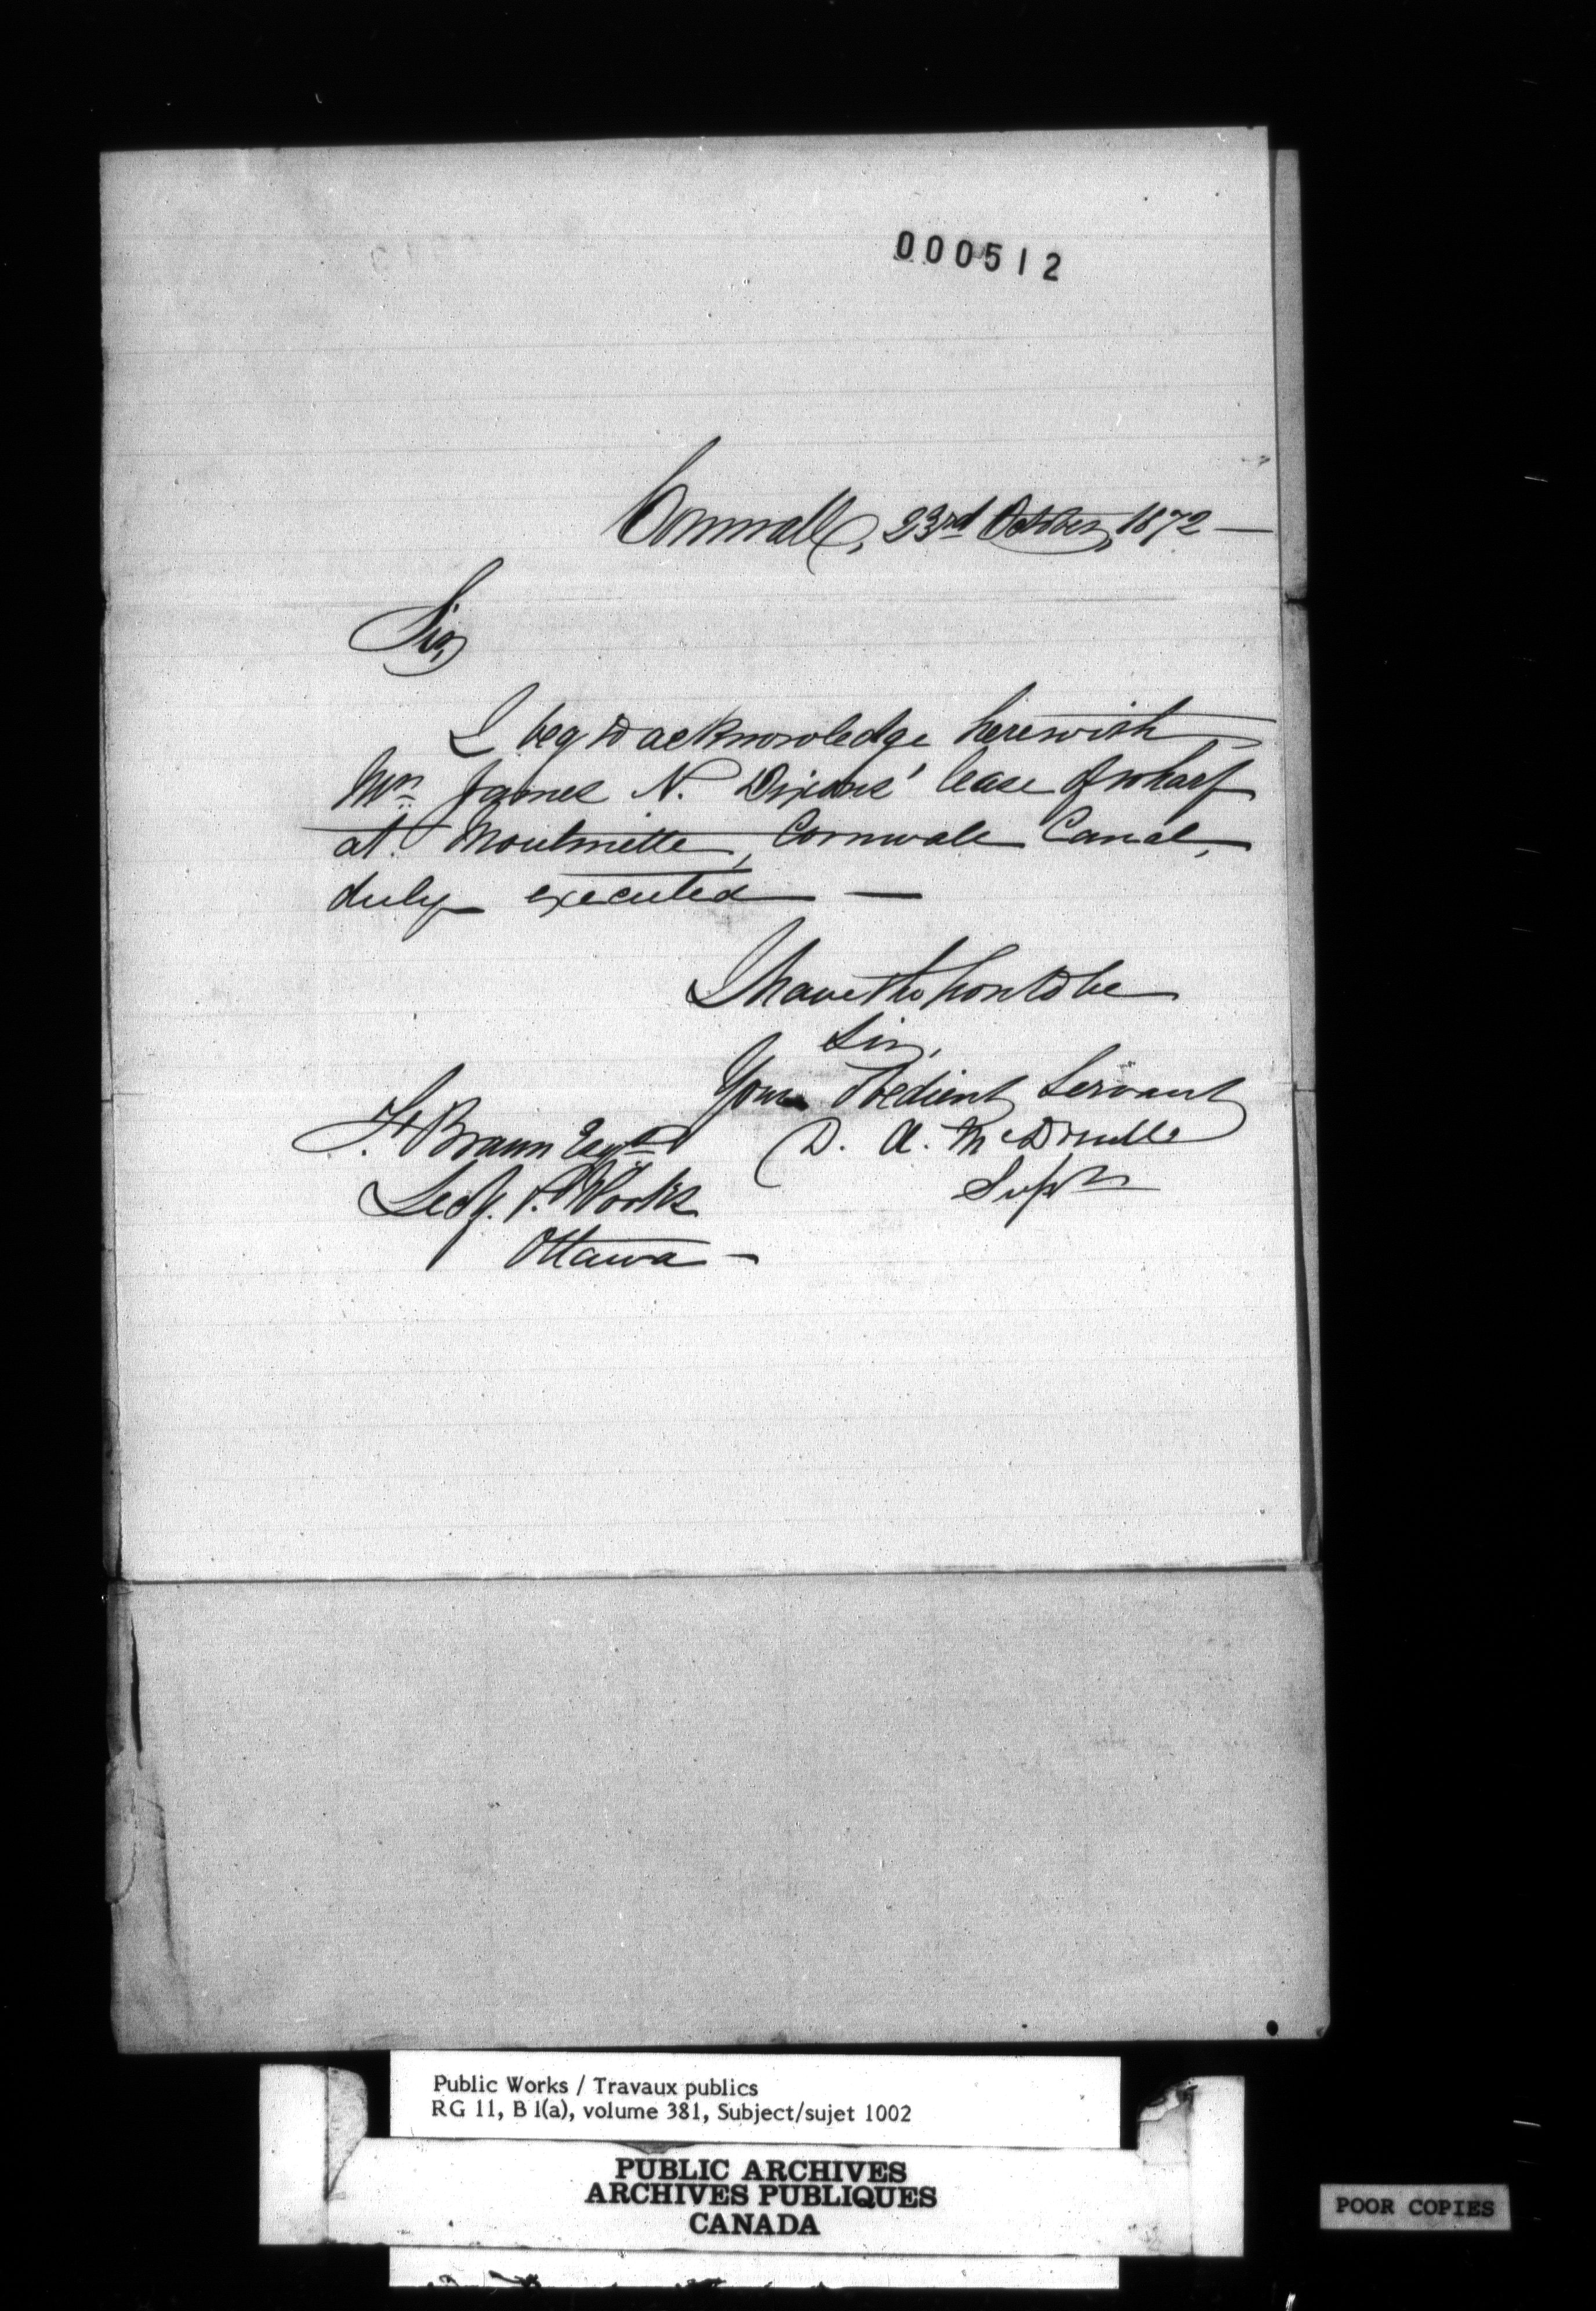 000512
Cornwall, 23rd October, 1872 —
Sir,
I beg to acknowledge herewith
Mr. James N. Dixons' lease of wharf
at Moulinette, Cornwall Canal,
duly executed —
I have the hon to be
Sir,
Your obedient Servant
D. A. McDonell
Supt
F. Braun Esqre
Secy. P. Works
Ottawa —
Public Works / Travaux publics
RG 11, B 1(a), volume 381, Subject/sujet 1002
PUBLIC ARCHIVES
ARCHIVES PUBLIQUES
CANADA
POOR COPIES